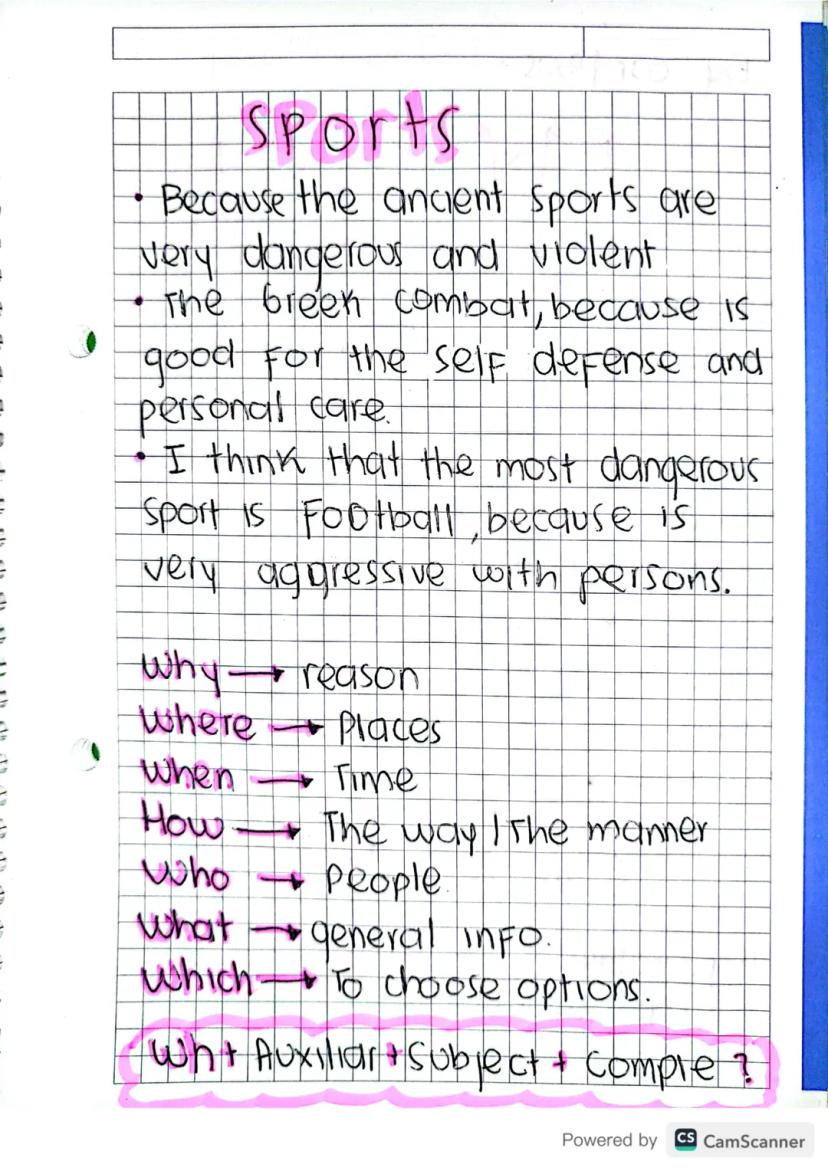 Sports
• Because the ancient sports are
very dangerous and violent
• The Greek combat, because is
good for the self defense and
personal care.
• I think that the most dangerous
sport is Football, because is
very aggressive with persons.
Why → reason
Where → Places
When → Time
How → The way / The manner
Who → People
What → general info.
Which → To choose options.
Wh + Auxiliar + Subject + Comple ?
Powered by CS CamScanner